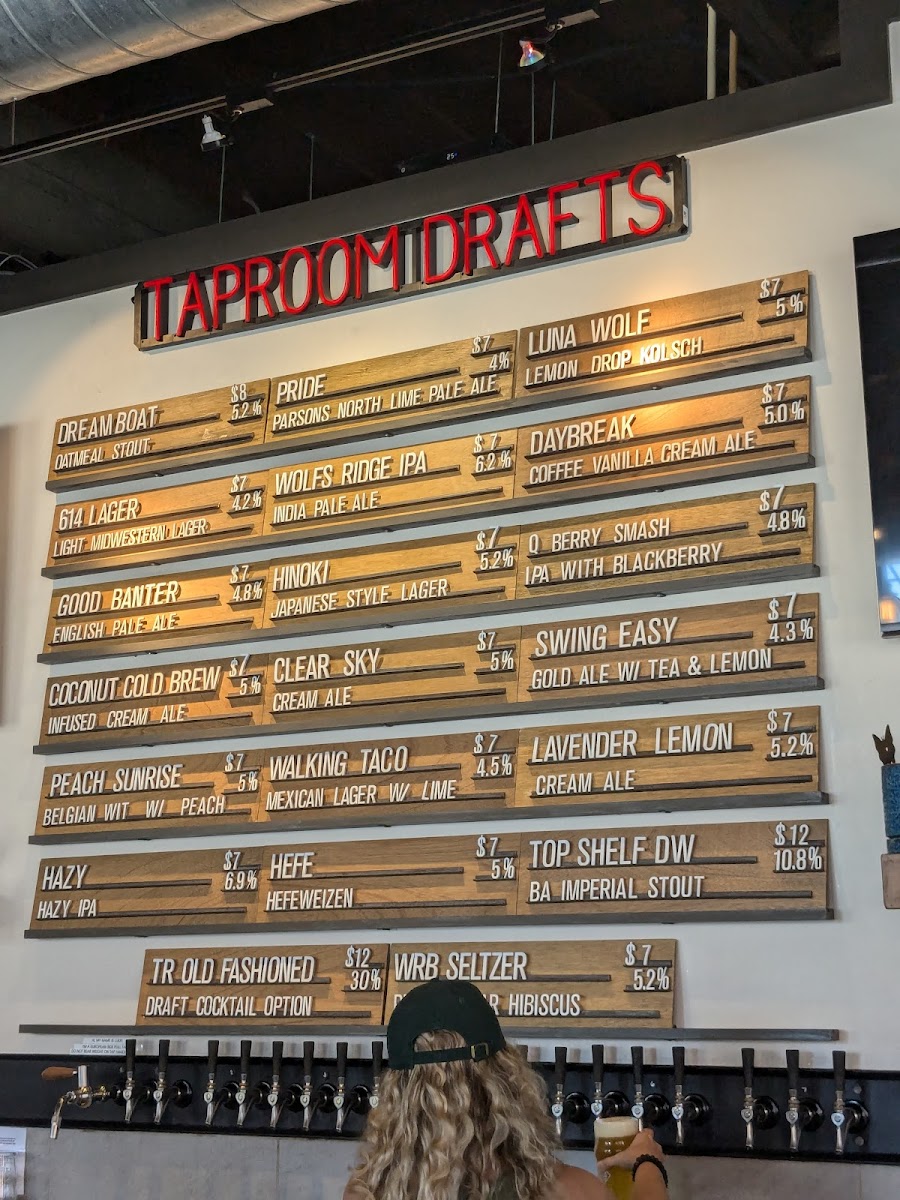 TAPROOM DRAFTS
DREAMBOAT $8
5.2%
OATMEAL STOUT
614 LAGER $7
4.2%
LIGHT MIDWESTERN LAGER
GOOD BANTER $7
4.8%
ENGLISH PALE ALE
COCONUT COLD BREW $7
5%
INFUSED CREAM ALE
PEACH SUNRISE $7
5%
BELGIAN WIT W/ PEACH
HAZY $7
6.9%
HAZY IPA
PRIDE $7
4%
PARSONS NORTH LIME PALE ALE
WOLFS RIDGE IPA $7
6.2%
INDIA PALE ALE
HINOKI $7
5.2%
JAPANESE STYLE LAGER
CLEAR SKY $7
5%
CREAM ALE
WALKING TACO $7
4.5%
MEXICAN LAGER W/ LIME
HEFE $7
5%
HEFEWEIZEN
LUNA WOLF $7
5%
LEMON DROP KOLSCH
DAYBREAK $7
5.0%
COFFEE VANILLA CREAM ALE
Q BERRY SMASH $7
4.8%
IPA WITH BLACKBERRY
SWING EASY $7
4.3%
GOLD ALE W/ TEA & LEMON
LAVENDER LEMON $7
5.2%
CREAM ALE
TOP SHELF DW $12
10.8%
BA IMPERIAL STOUT
TR OLD FASHIONED $12
30%
DRAFT COCKTAIL OPTION
WRB SELTZER $7
5.2%
HIBISCUS